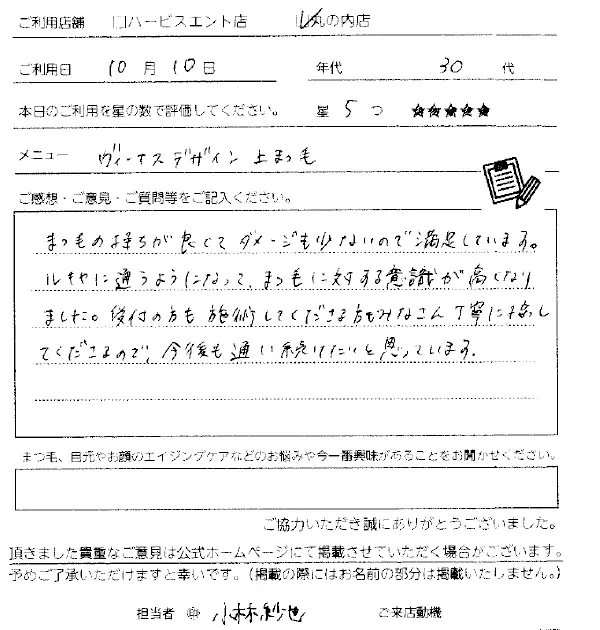 ご利用店舗 □ハービスエント店 ☑丸の内店
ご利用日 10月10日 年代 30代
本日のご利用を星の数で評価してください。 星 5つ ★★★★★
メニュー ヴィーナスデザイン 上まつ毛
ご感想・ご意見・ご質問等をご記入ください。
まつ毛の持ちが良くてダメージも少ないので満足しています。
ルキヤに通うようになって、まつ毛に対する意識が高くなり
ました。受付の方も施術してくださる方もみなさん丁寧に接し
てくださるので、今後も通い続けたいと思っています。
まつ毛、目元やお顔のエイジングケアなどのお悩みや今一番興味があることをお聞かせください。
ご協力いただき誠にありがとうございました。
頂きました貴重なご意見は公式ホームページにて掲載させていただく場合がございます。
予めご了承いただけますと幸いです。(掲載の際にはお名前の部分は掲載いたしません。)
担当者 小林紗也 ご来店動機